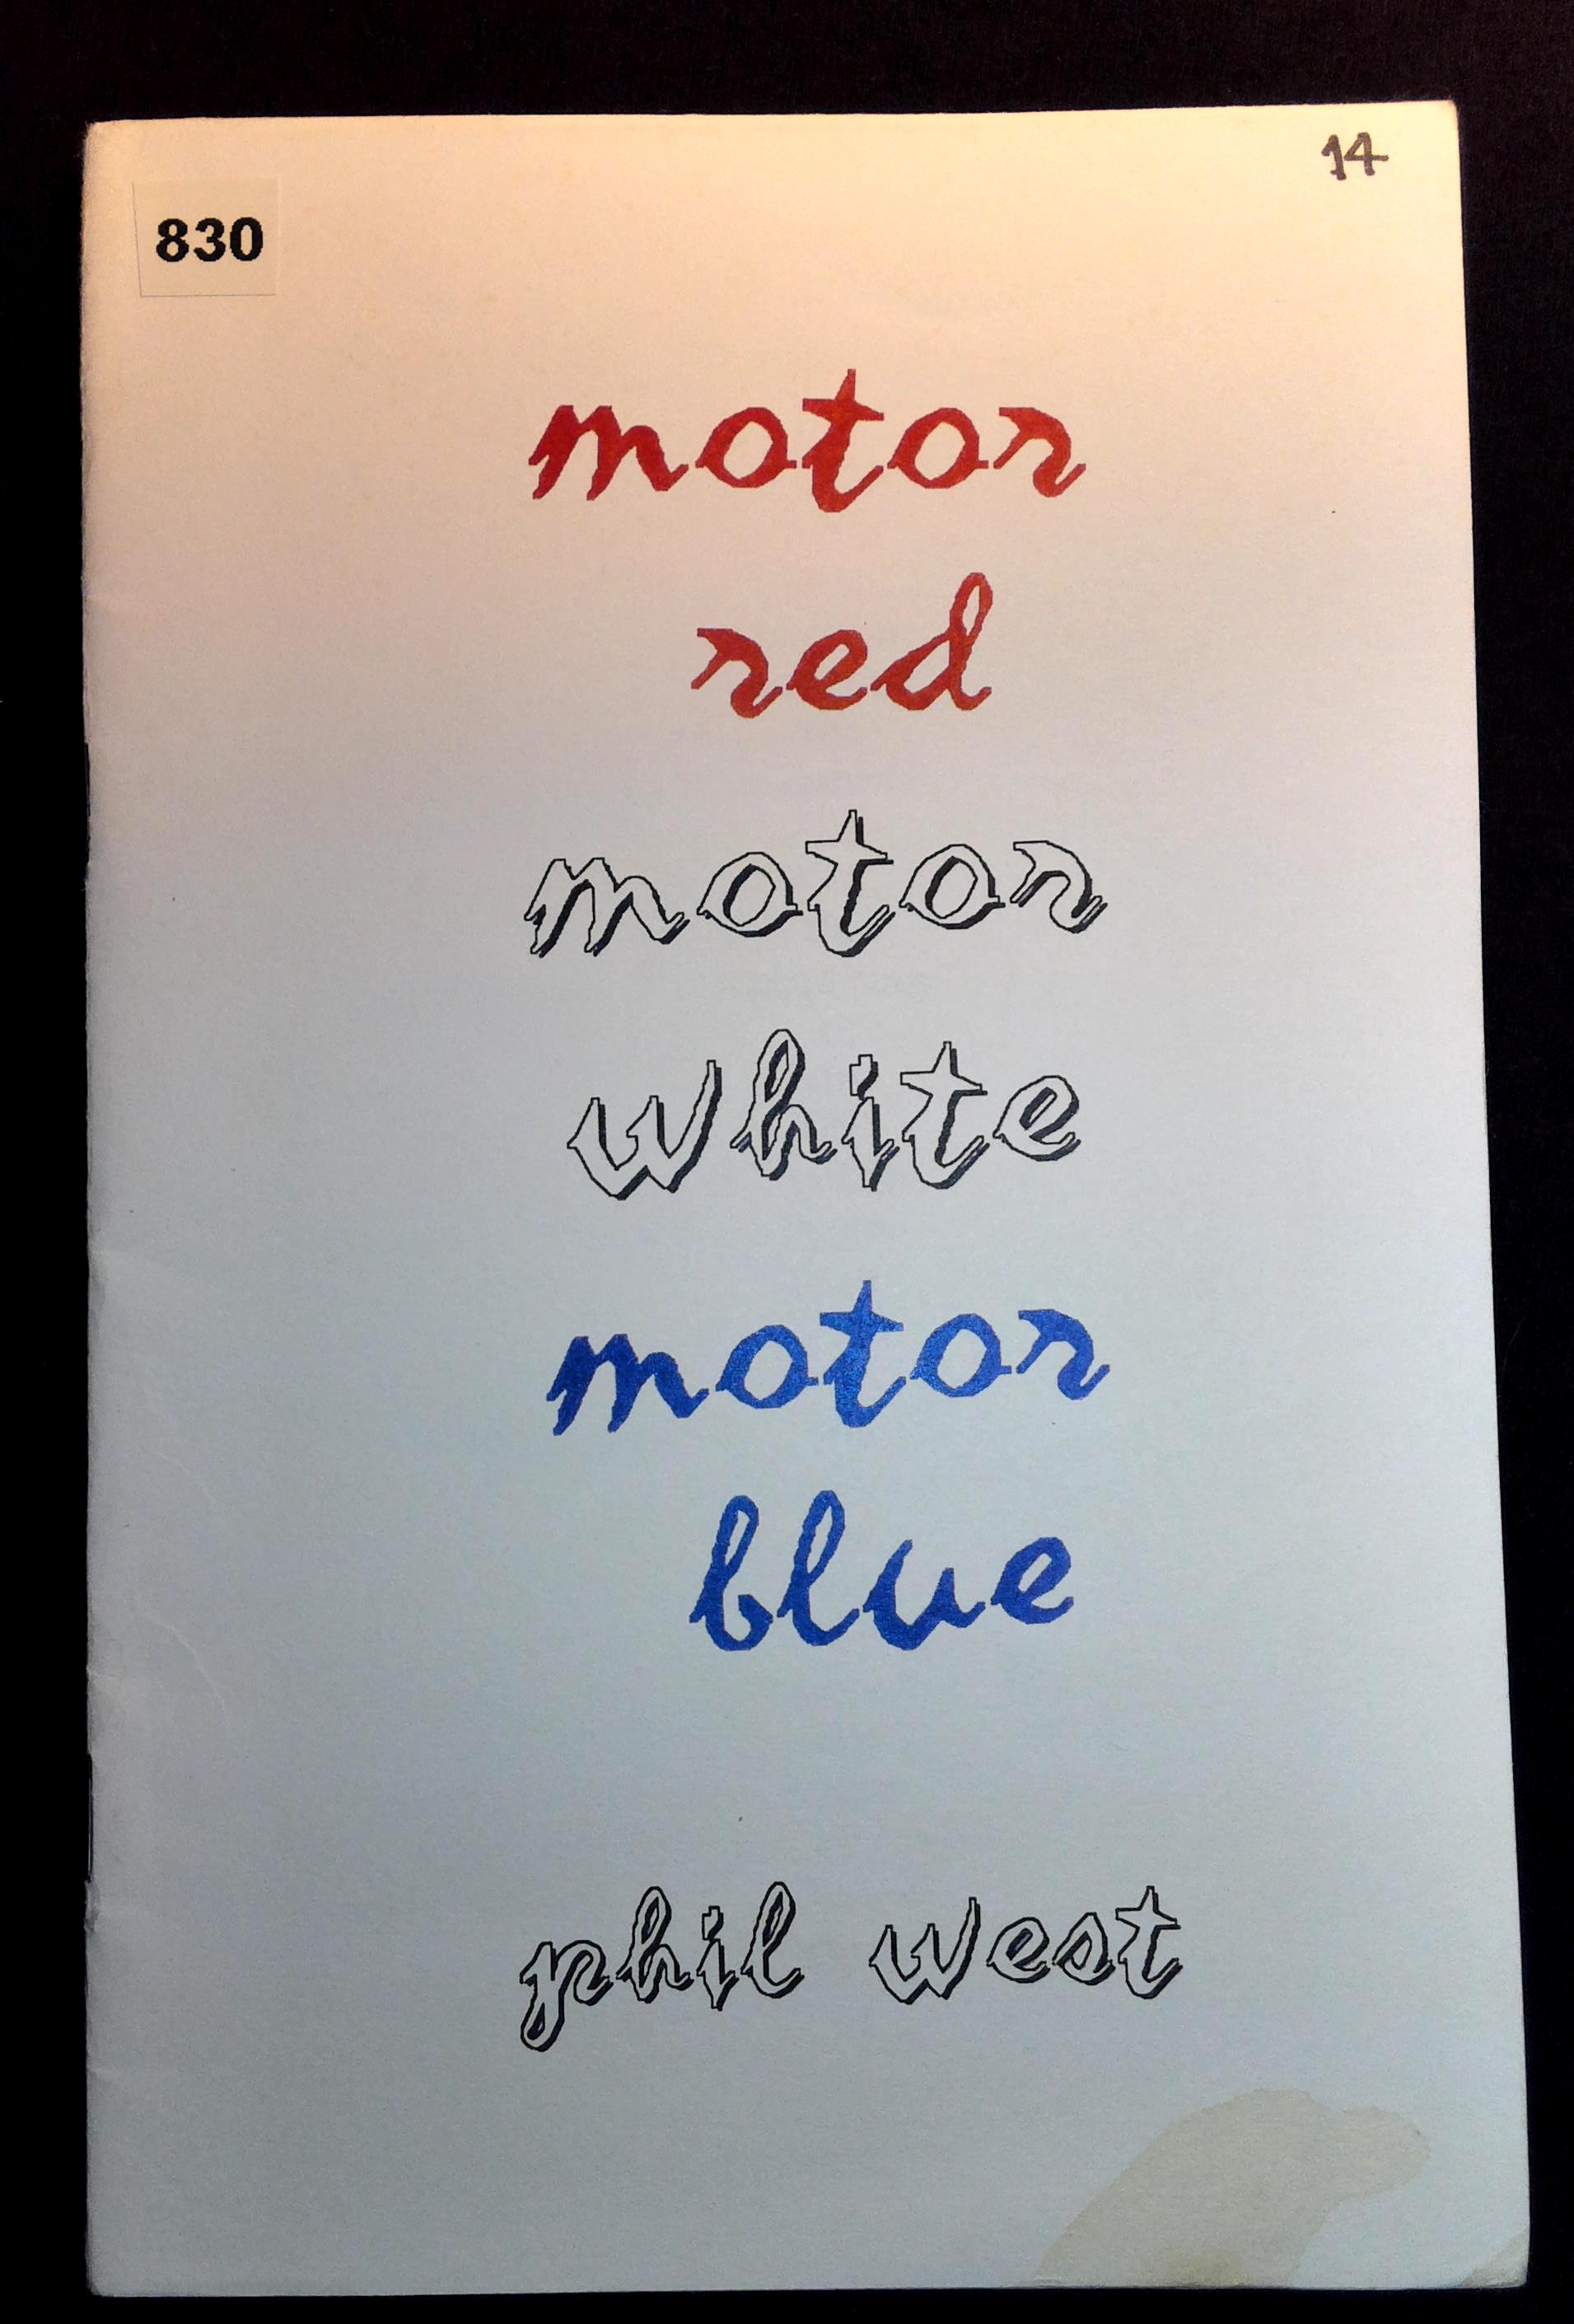 14
830
motor
red
motor
white
motor
blue
phil west